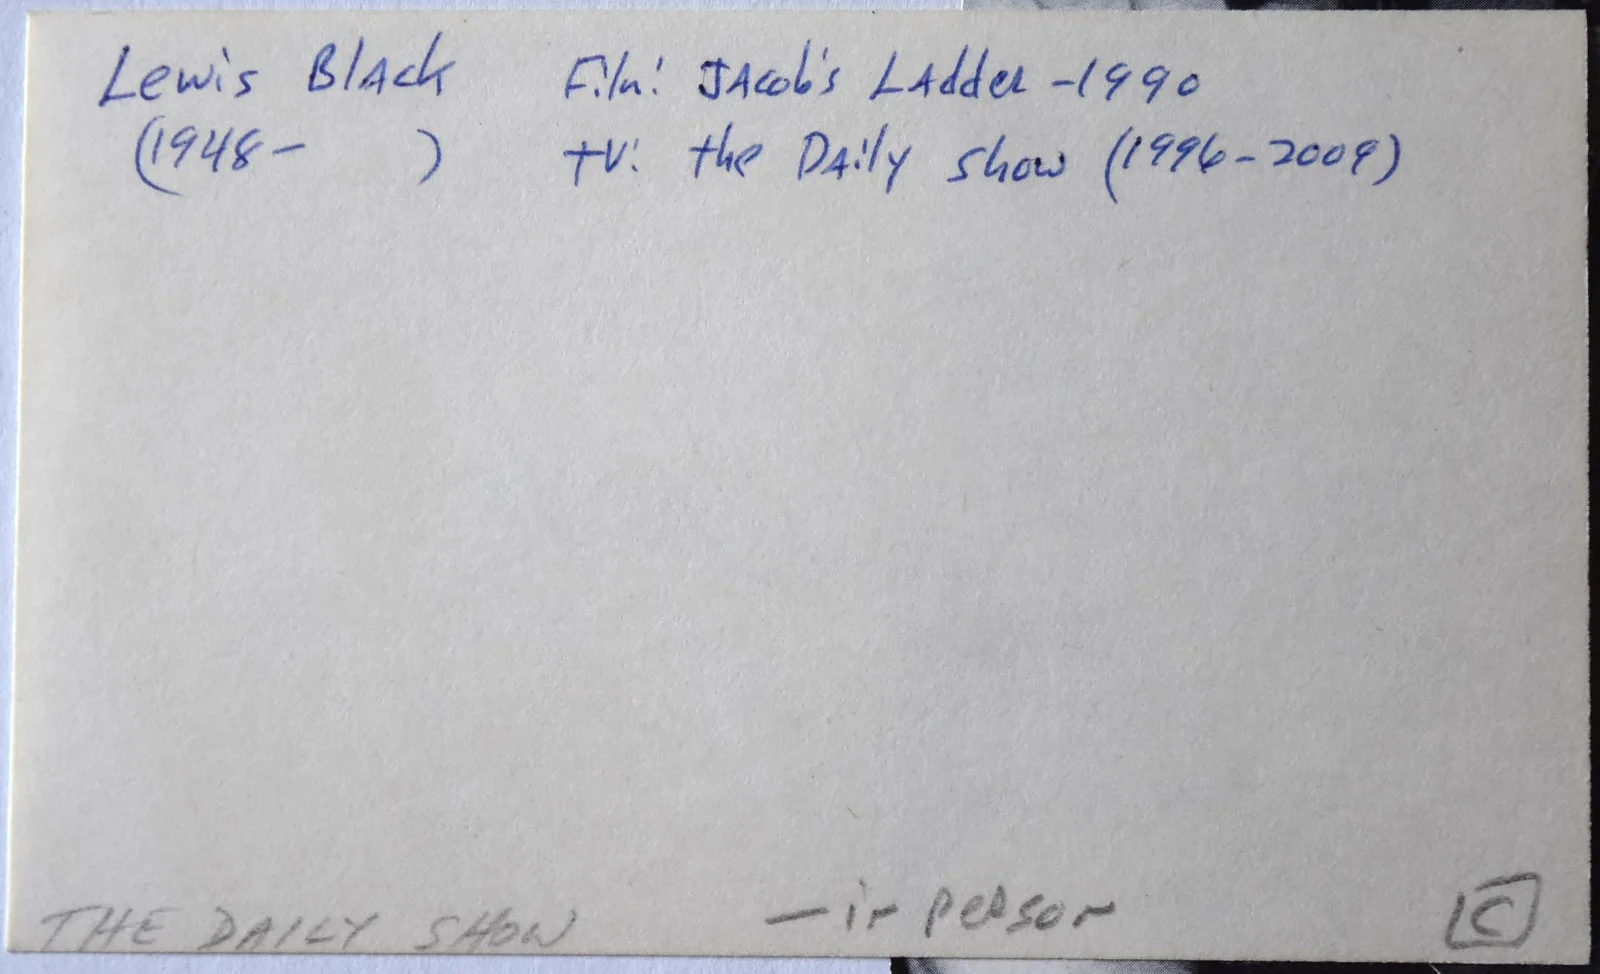 Lewis Black Film: Jacob's Ladder - 1990
(1948- ) TV: the Daily Show (1996-2009)
THE DAILY SHOW - in person C